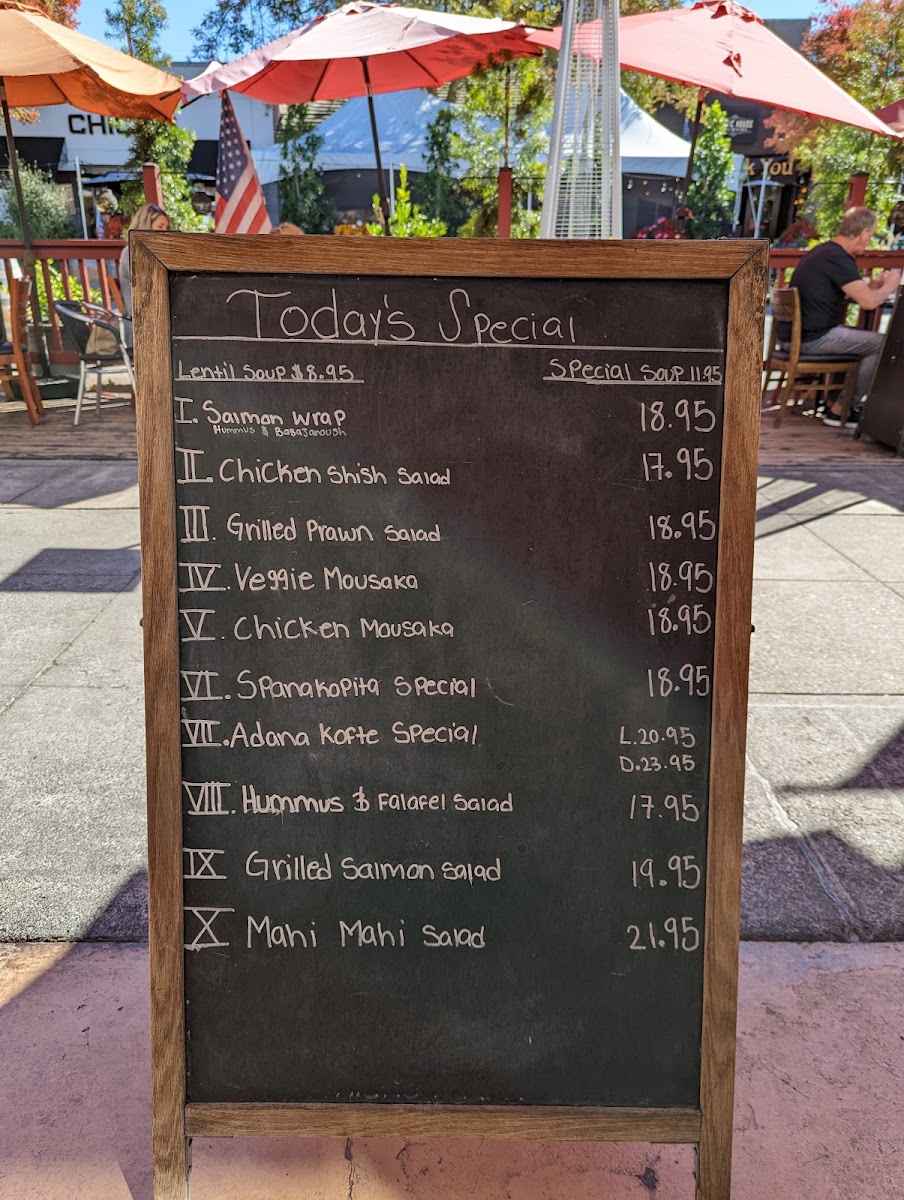 CHI
HOUSE
k You
Today's Special
Lentil Soup $8.95 Special Soup 11.95
I. Salmon Wrap 18.95
Hummus & Babajanoush
II. Chicken Shish Salad 17.95
III. Grilled Prawn Salad 18.95
IV. Veggie Mousaka 18.95
V. Chicken Mousaka 18.95
VI. Spanakopita Special 18.95
VII. Adana Kofte Special L.20.95
D.23.95
VIII. Hummus & Falafel Salad 17.95
IX Grilled Salmon Salad 19.95
X Mahi Mahi Salad 21.95